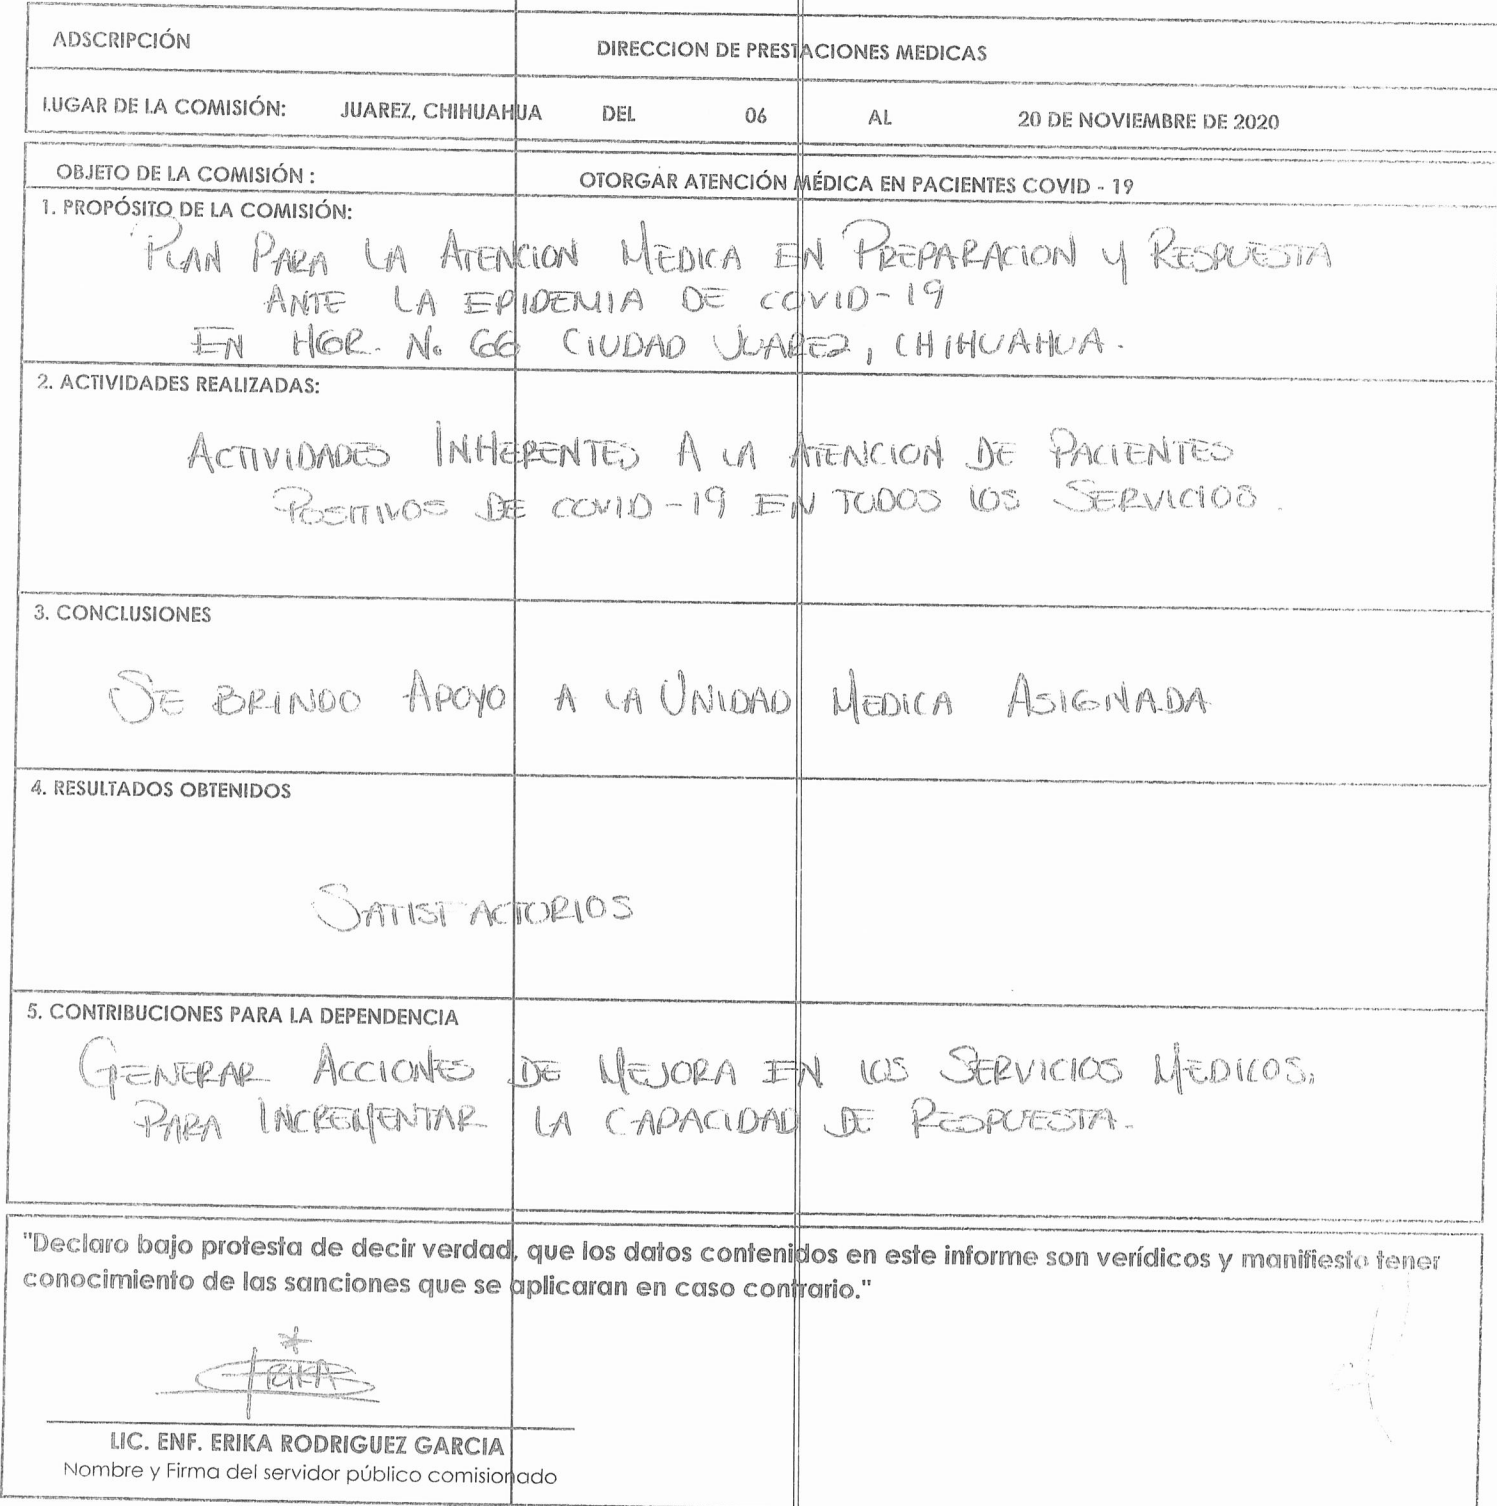 ADSCRIPCIÓN DIRECCION DE PRESTACIONES MEDICAS
LUGAR DE LA COMISIÓN: JUAREZ, CHIHUAHUA DEL 06 AL 20 DE NOVIEMBRE DE 2020
OBJETO DE LA COMISIÓN : OTORGAR ATENCIÓN MÉDICA EN PACIENTES COVID - 19
1. PROPÓSITO DE LA COMISIÓN:
PLAN PARA LA ATENCION MEDICA EN PREPARACION Y RESPUESTA
ANTE LA EPIDEMIA DE COVID-19
EN HGR. No 66 CIUDAD JUAREZ, CHIHUAHUA.
2. ACTIVIDADES REALIZADAS:
ACTIVIDADES INHERENTES A LA ATENCION DE PACIENTES
POSITIVOS DE COVID-19 EN TODOS LOS SERVICIOS.
3. CONCLUSIONES
SE BRINDO APOYO A LA UNIDAD MEDICA ASIGNADA
4. RESULTADOS OBTENIDOS
SATISFACTORIOS
5. CONTRIBUCIONES PARA LA DEPENDENCIA
GENERAR ACCIONES DE MEJORA EN LOS SERVICIOS MEDICOS.
PARA INCREMENTAR LA CAPACIDAD DE RESPUESTA.
"Declaro bajo protesta de decir verdad, que los datos contenidos en este informe son verídicos y manifiesto tener
conocimiento de las sanciones que se aplicaran en caso contrario."
ERIKA
LIC. ENF. ERIKA RODRIGUEZ GARCIA
Nombre y Firma del servidor público comisionado